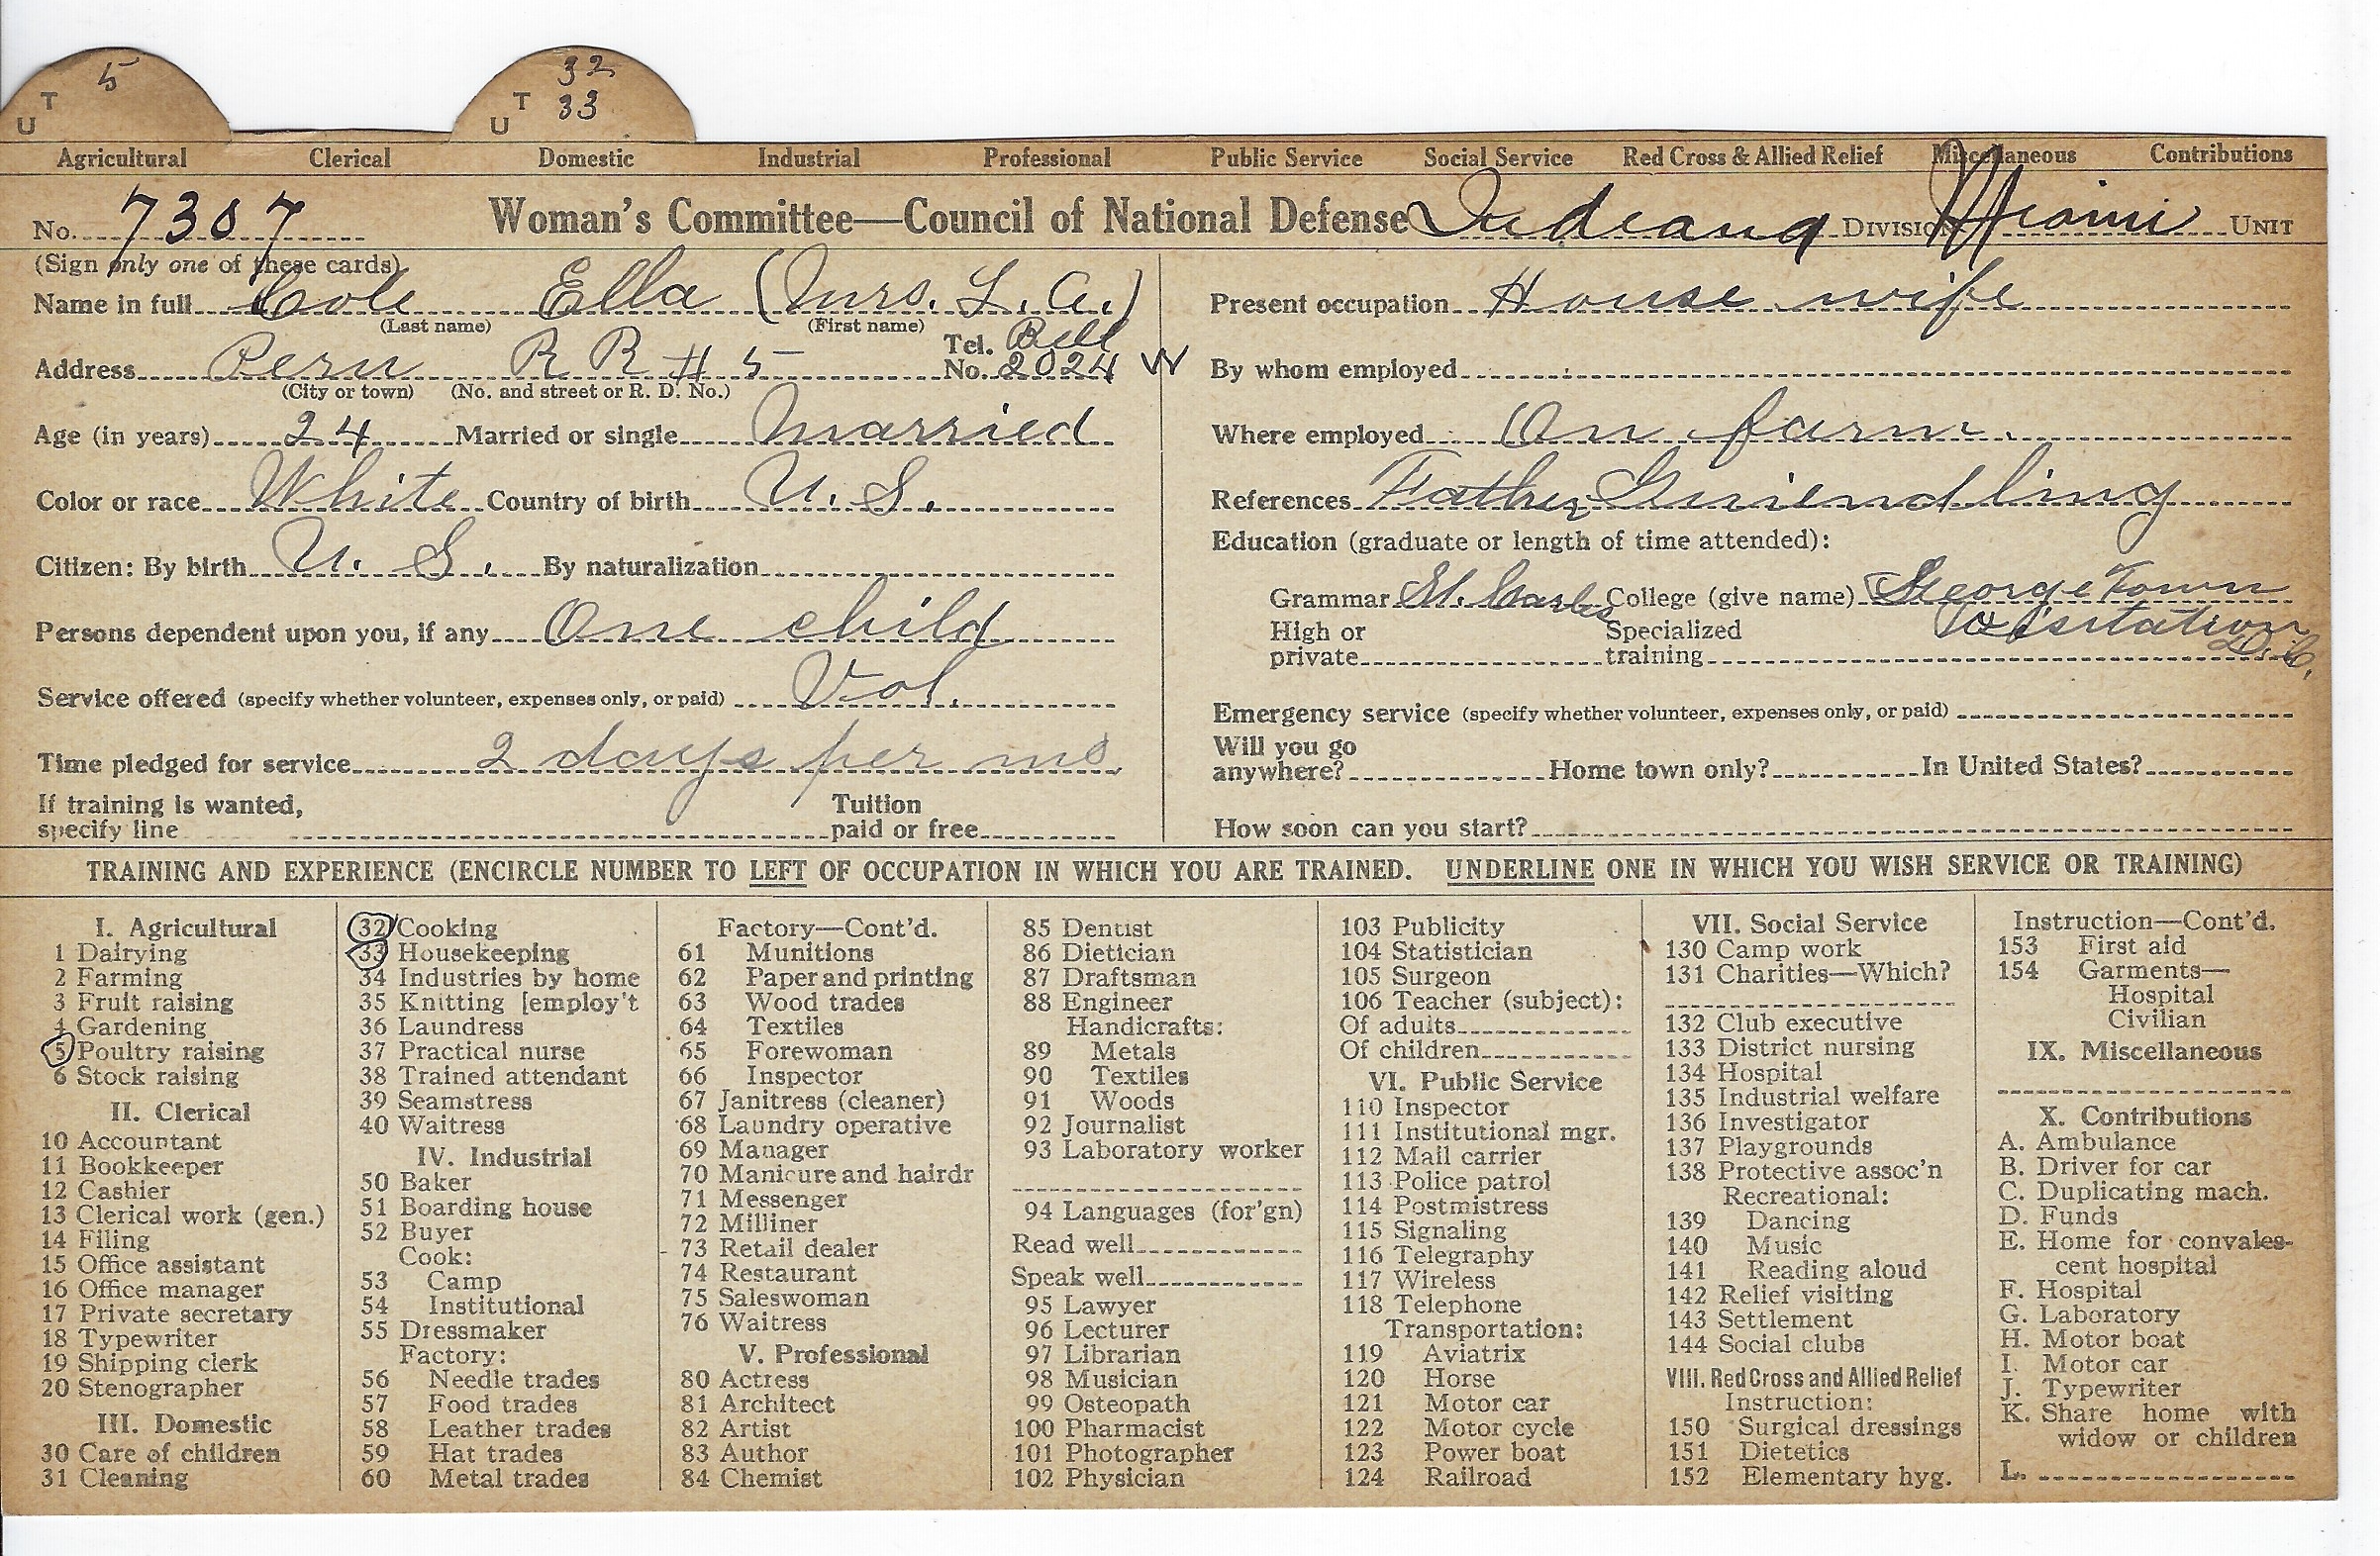 5
T
U
32
T 33
U
Agricultural Clerical Domestic Industrial Professional Public Service Social Service Red Cross & Allied Relief Miscellaneous Contributions
No. 7307 Woman's Committee—Council of National Defense Indiana Division Miami Unit
(Sign only one of these cards)
Name in full Cole Ella (Mrs. L. A.)
(Last name) (First name)
Address Peru R R # 5 Tel. No. Bell 2024 W
(City or town) (No. and street or R. D. No.)
Age (in years) 24 Married or single Married
Color or race White Country of birth U. S.
Citizen: By birth U. S. By naturalization
Persons dependent upon you, if any One child
Service offered (specify whether volunteer, expenses only, or paid) Vol.
Time pledged for service 2 days per mo
If training is wanted,
specify line
Tuition
paid or free
Present occupation House wife
By whom employed
Where employed On farm
References Father
Education (graduate or length of time attended):
Grammar St. Charles College (give name) George Town
Visitation
D. C.
High or
private
Specialized
training
Emergency service (specify whether volunteer, expenses only, or paid)
Will you go
anywhere? Home town only? In United States?
How soon can you start?
TRAINING AND EXPERIENCE (ENCIRCLE NUMBER TO LEFT OF OCCUPATION IN WHICH YOU ARE TRAINED. UNDERLINE ONE IN WHICH YOU WISH SERVICE OR TRAINING)
I. Agricultural
1 Dairying
2 Farming
3 Fruit raising
4 Gardening
5 Poultry raising
6 Stock raising
II. Clerical
10 Accountant
11 Bookkeeper
12 Cashier
13 Clerical work (gen.)
14 Filing
15 Office assistant
16 Office manager
17 Private secretary
18 Typewriter
19 Shipping clerk
20 Stenographer
III. Domestic
30 Care of children
31 Cleaning
32 Cooking
33 Housekeeping
34 Industries by home
35 Knitting [employ't
36 Laundress
37 Practical nurse
38 Trained attendant
39 Seamstress
40 Waitress
IV. Industrial
50 Baker
51 Boarding house
52 Buyer
Cook:
53 Camp
54 Institutional
55 Dressmaker
Factory:
56 Needle trades
57 Food trades
58 Leather trades
59 Hat trades
60 Metal trades
Factory—Cont'd.
61 Munitions
62 Paper and printing
63 Wood trades
64 Textiles
65 Forewoman
66 Inspector
67 Janitress (cleaner)
68 Laundry operative
69 Manager
70 Manicure and hairdr
71 Messenger
72 Milliner
73 Retail dealer
74 Restaurant
75 Saleswoman
76 Waitress
V. Professional
80 Actress
81 Architect
82 Artist
83 Author
84 Chemist
85 Dentist
86 Dietician
87 Draftsman
88 Engineer
Handicrafts:
89 Metals
90 Textiles
91 Woods
92 Journalist
93 Laboratory worker
94 Languages (for'gn)
Read well
Speak well
95 Lawyer
96 Lecturer
97 Librarian
98 Musician
99 Osteopath
100 Pharmacist
101 Photographer
102 Physician
103 Publicity
104 Statistician
105 Surgeon
106 Teacher (subject):
Of adults
Of children
VI. Public Service
110 Inspector
111 Institutional mgr.
112 Mail carrier
113 Police patrol
114 Postmistress
115 Signaling
116 Telegraphy
117 Wireless
118 Telephone
Transportation:
119 Aviatrix
120 Horse
121 Motor car
122 Motor cycle
123 Power boat
124 Railroad
VII. Social Service
130 Camp work
131 Charities—Which?
132 Club executive
133 District nursing
134 Hospital
135 Industrial welfare
136 Investigator
137 Playgrounds
138 Protective assoc'n
Recreational:
139 Dancing
140 Music
141 Reading aloud
142 Relief visiting
143 Settlement
144 Social clubs
VIII. Red Cross and Allied Relief
Instruction:
150 Surgical dressings
151 Dietetics
152 Elementary hyg.
Instruction—Cont'd.
153 First aid
154 Garments—
Hospital
Civilian
IX. Miscellaneous
X. Contributions
A. Ambulance
B. Driver for car
C. Duplicating mach.
D. Funds
E. Home for convales-
cent hospital
F. Hospital
G. Laboratory
H. Motor boat
I. Motor car
J. Typewriter
K. Share home with
widow or children
L.